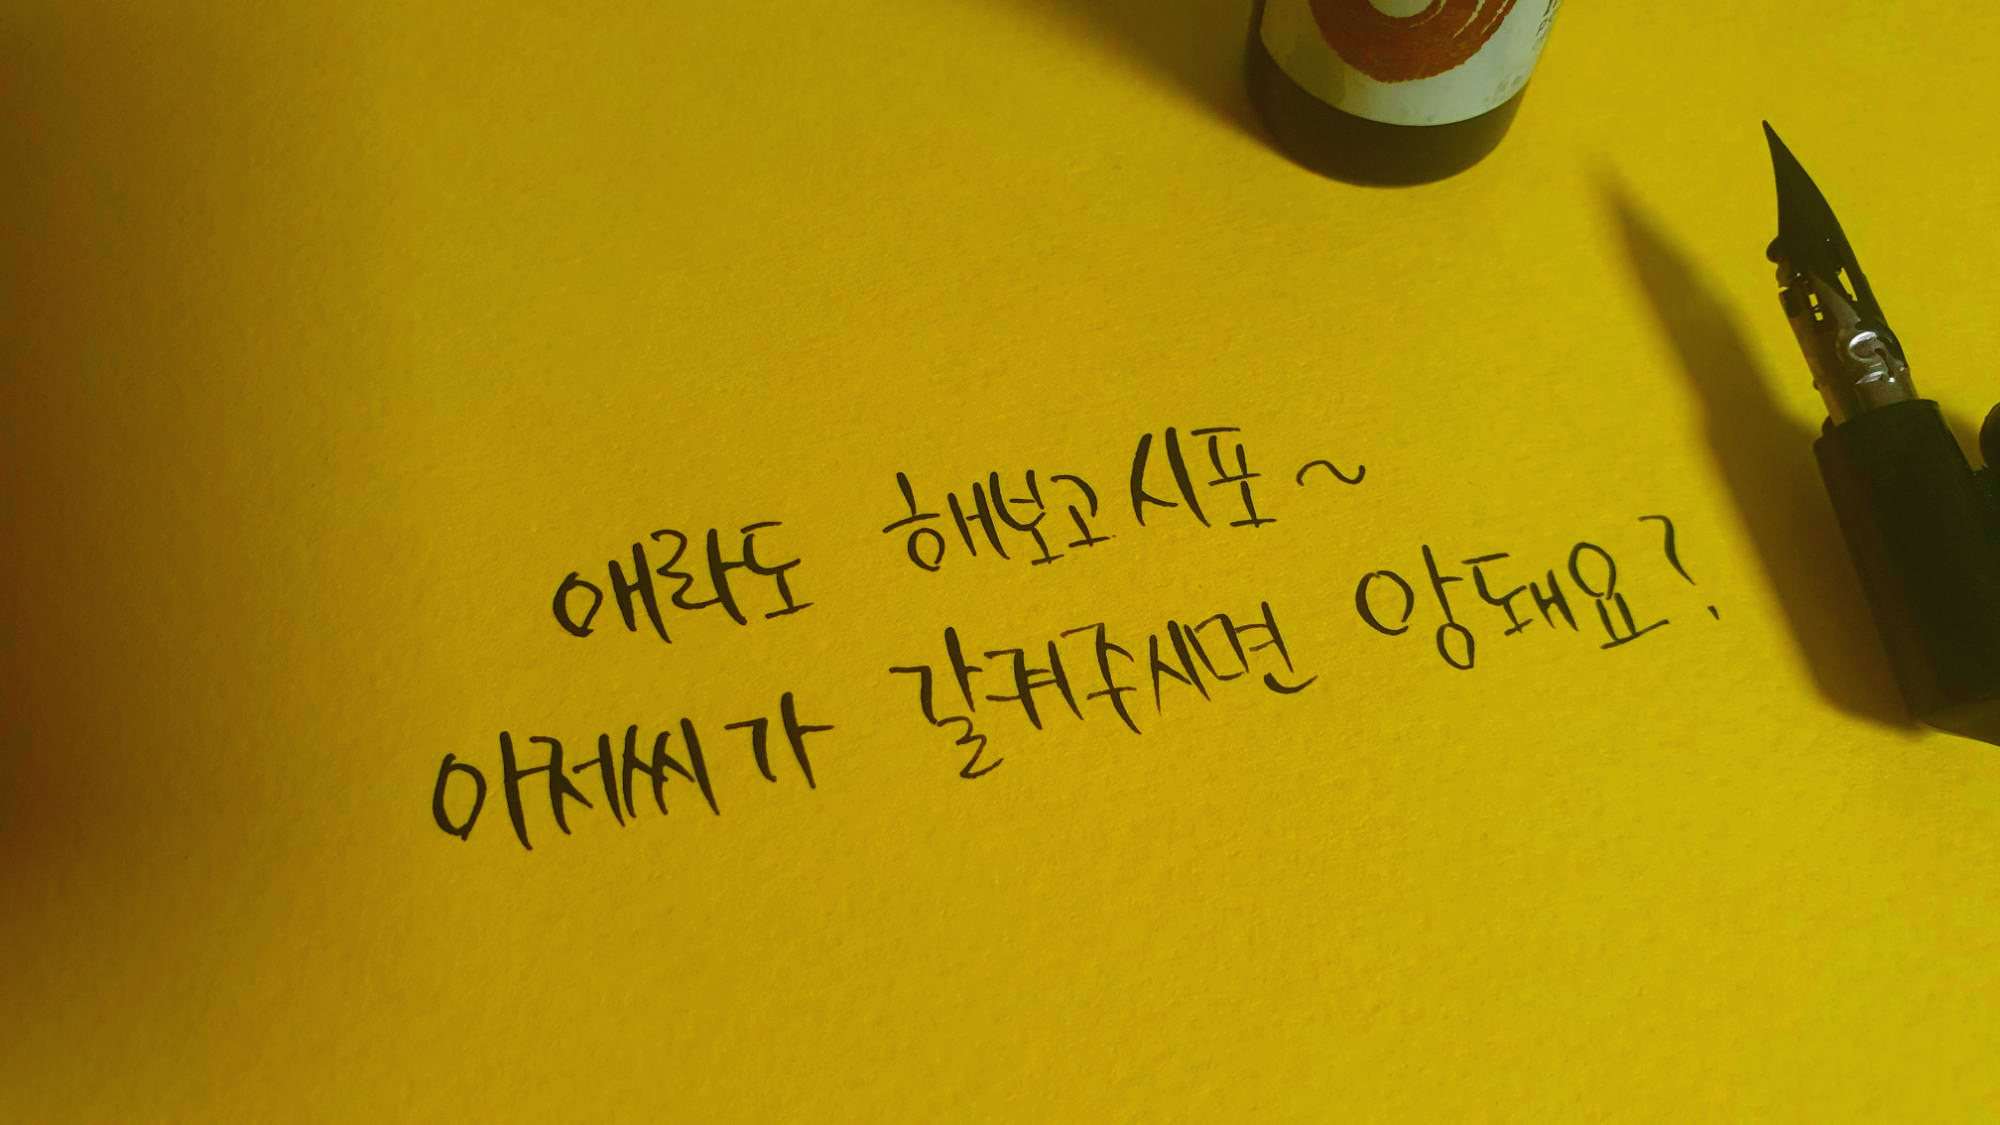 애라도 해보고시포~
아저씨가 갈켜주시면 앙돼요?